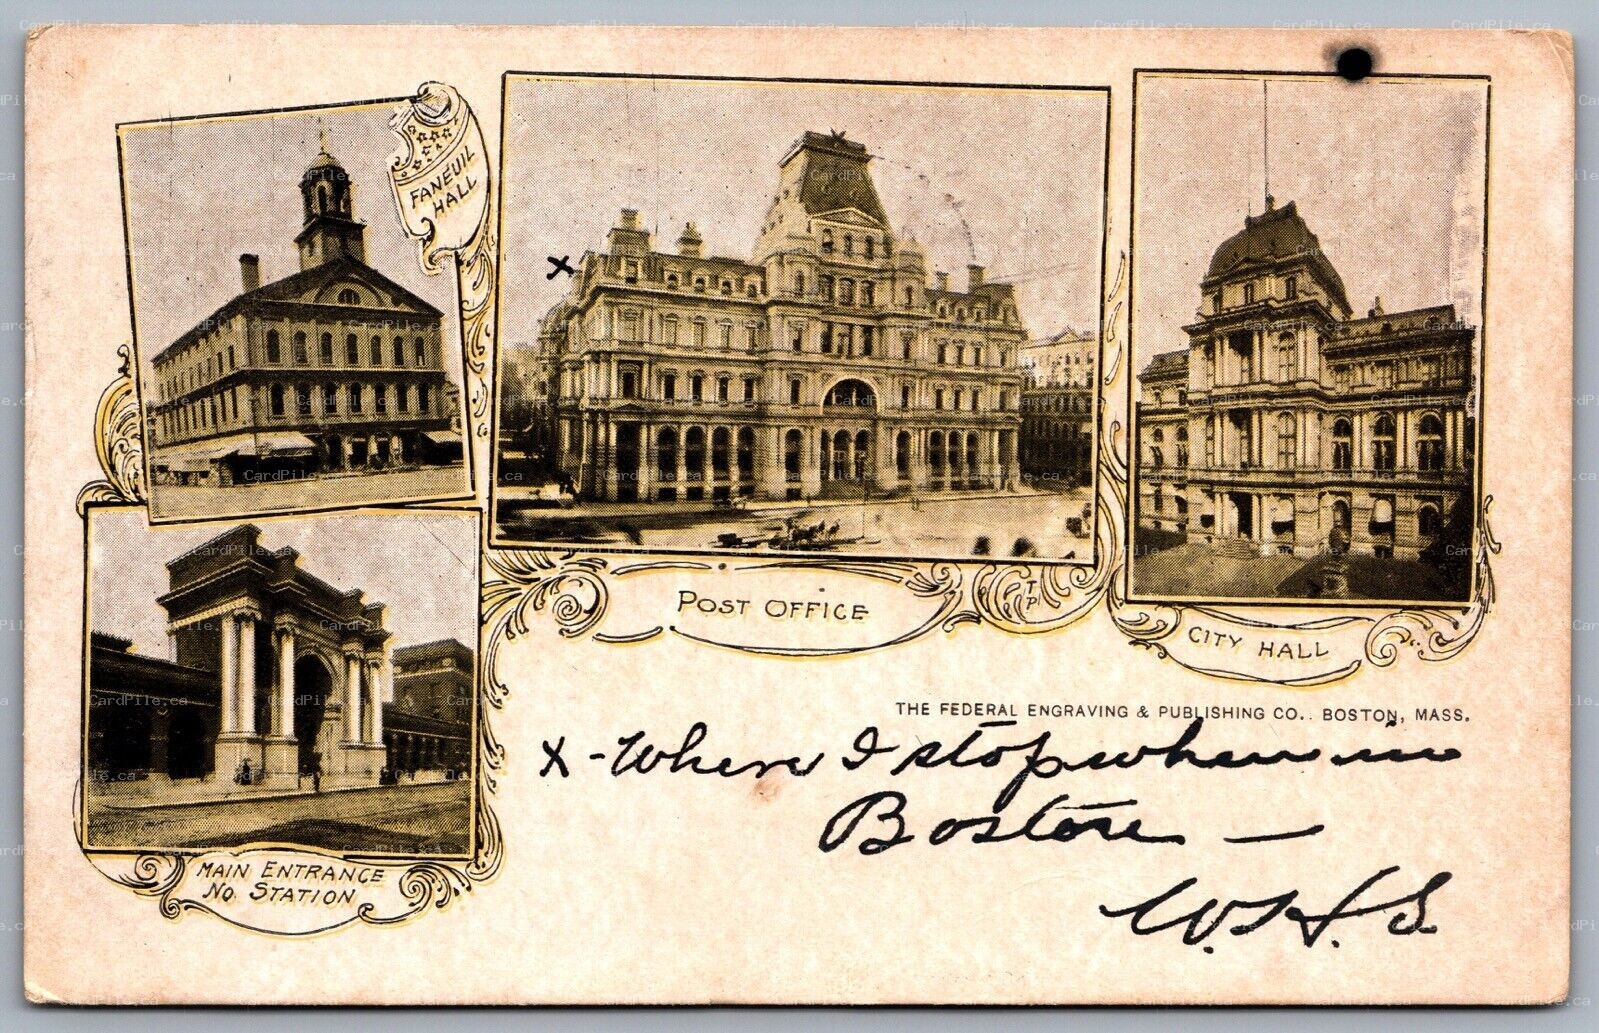 FANEUIL
HALL
X
POST OFFICE
T
P
CITY HALL
MAIN ENTRANCE
NO. STATION
THE FEDERAL ENGRAVING & PUBLISHING CO., BOSTON, MASS.
X - Where I stop when in
Boston —
W.H.S.
CardPile.ca